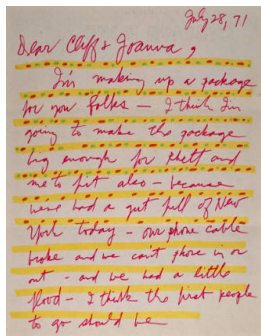 July 28, 71
Dear Cliff & Joanna,
I'm making up a package
for you folks — I think I'm
going to make the package
big enough for Rhett and
me to fit also — because
we've had a gut full of New
York today — our phone cable
broke and we can't phone in or
out — and we had a little
flood — I think the first people
to go should be